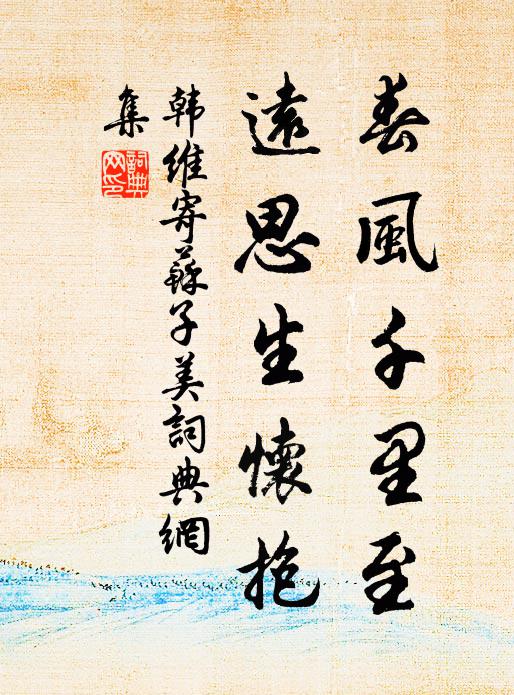 春風千里至
遠思生懷抱
韩維寄蘇子美詞典網
集
詞典
网印